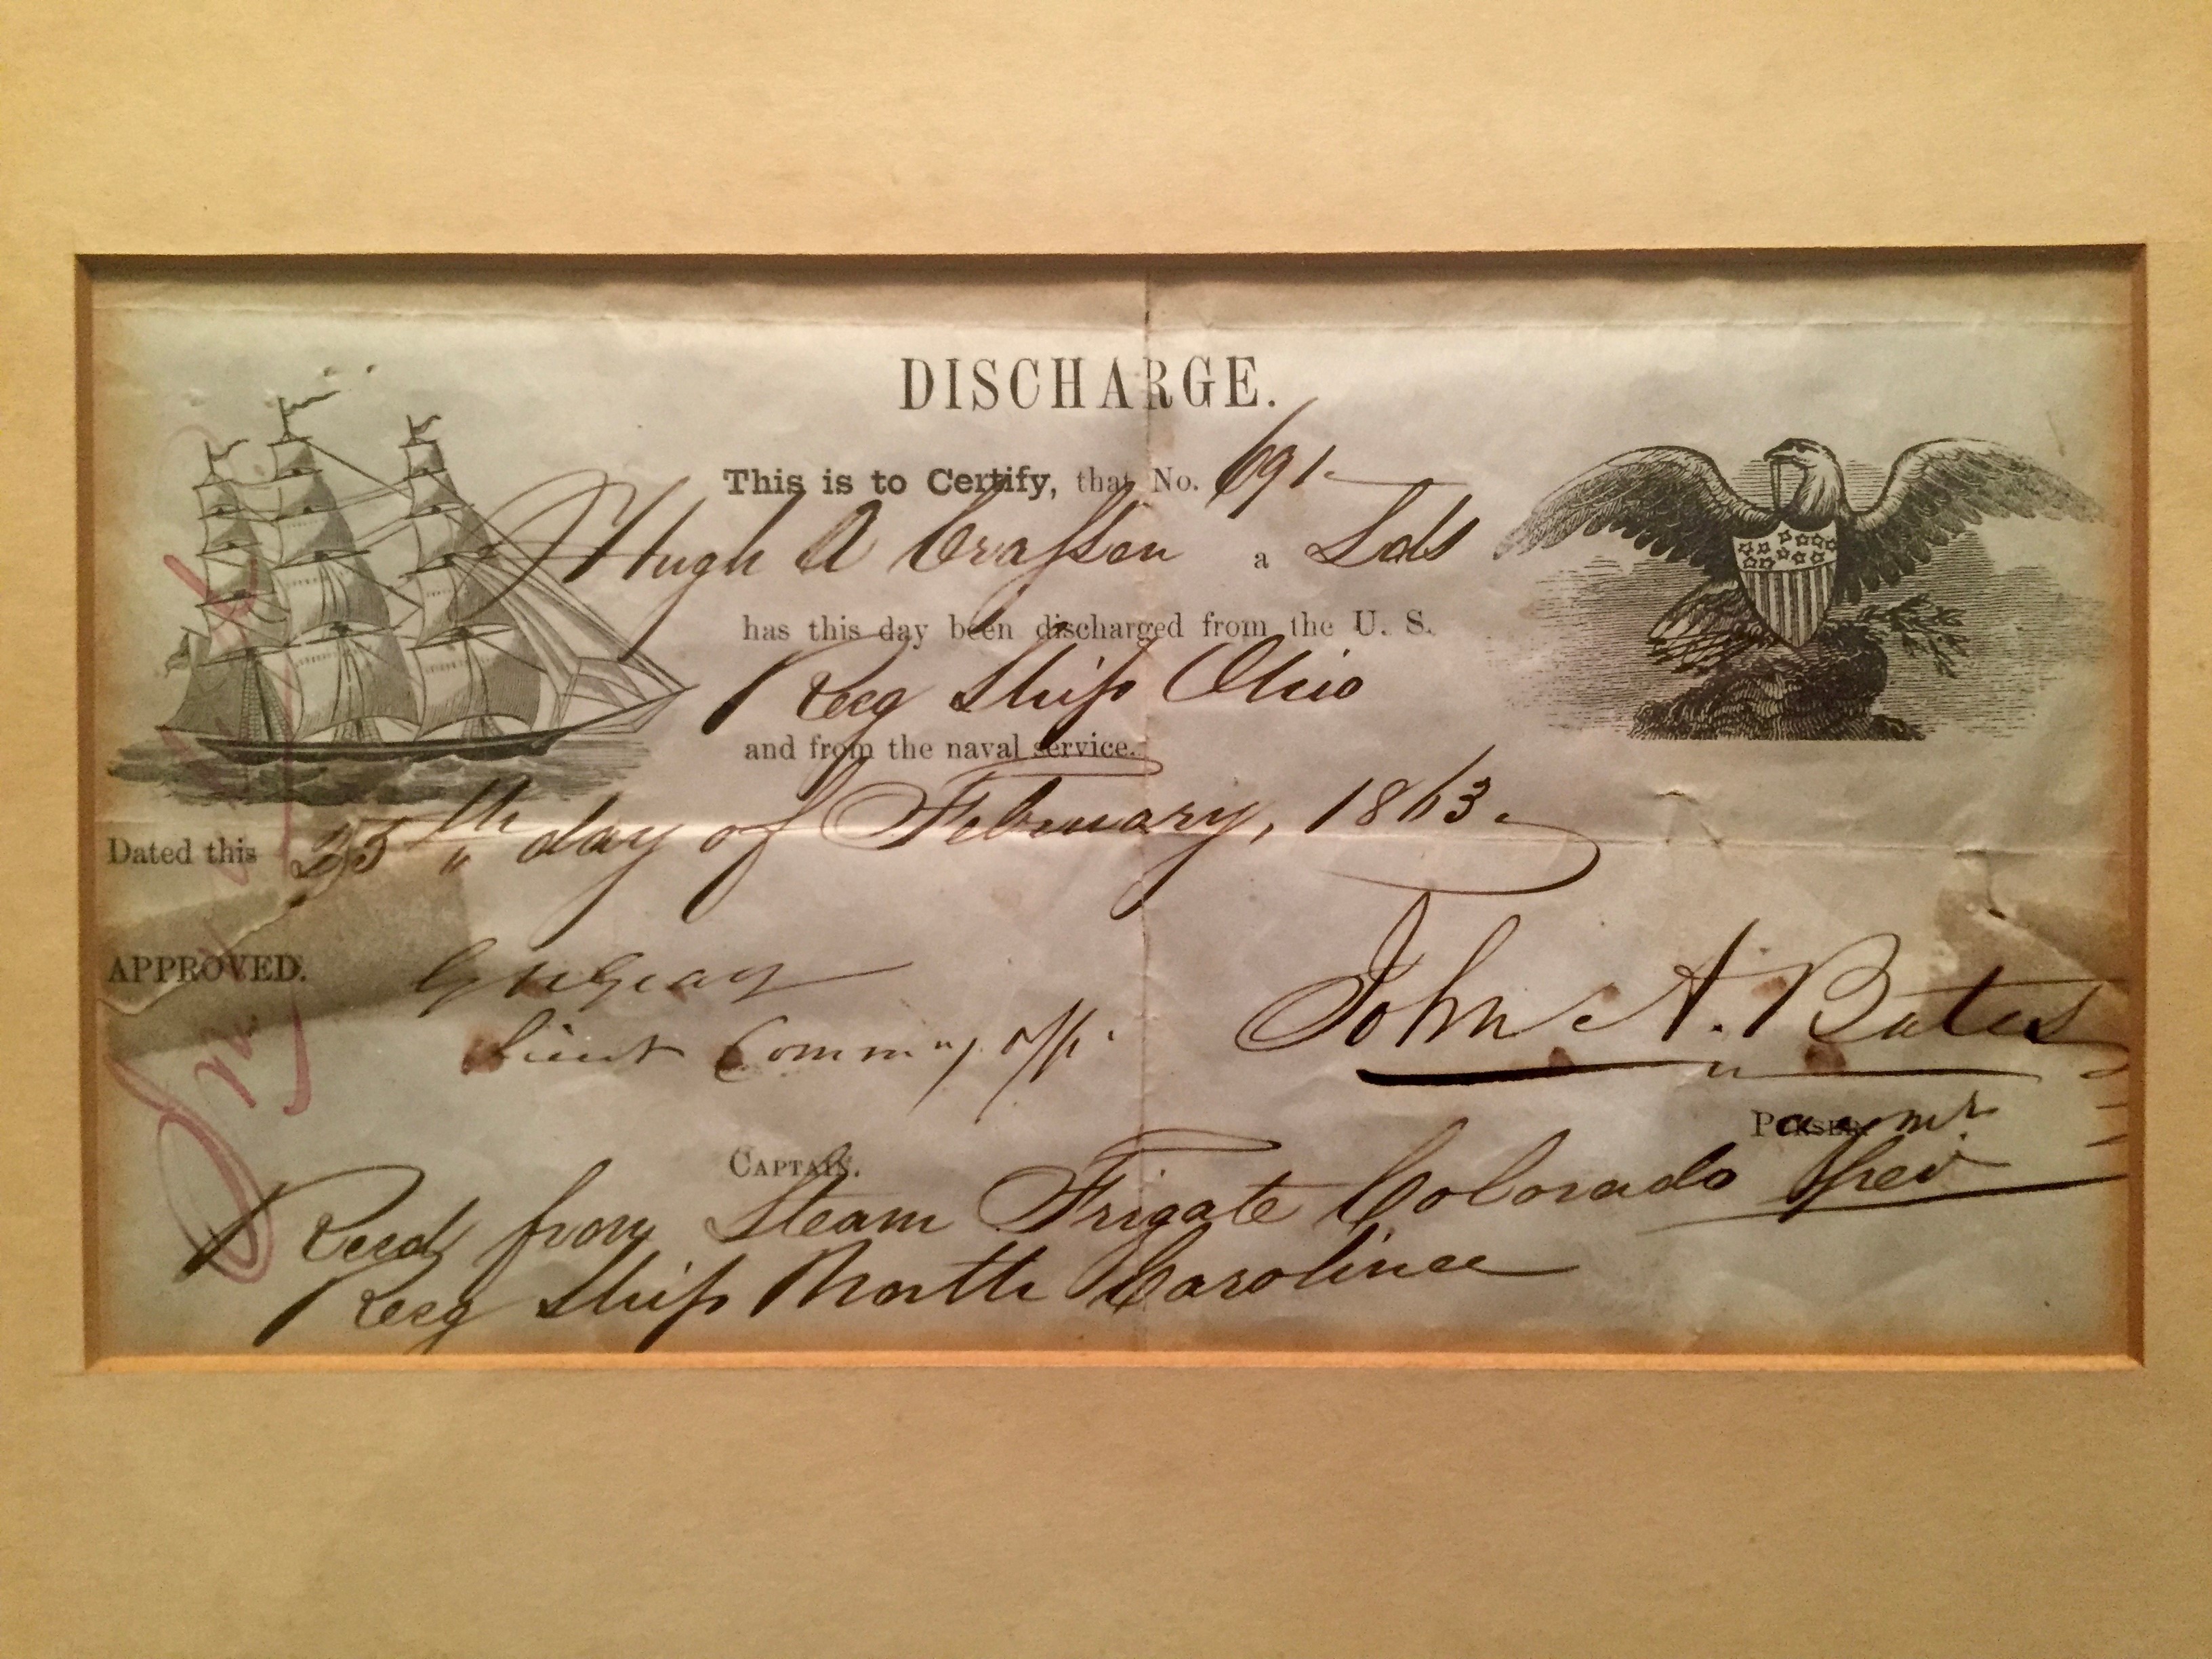 DISCHARGE.
This is to Certify, that No. 691
Hugh A Crafsen a Lds
has this day been discharged from the U. S.
Recg Ship Ohio
and from the naval service.
Dated this 25th day of February, 1863.
APPROVED.
Lieut Comm
John A. Bates
Paymr
CAPTAIN.
Recd from Steam Frigate Colorado
Recg Ship North Carolina